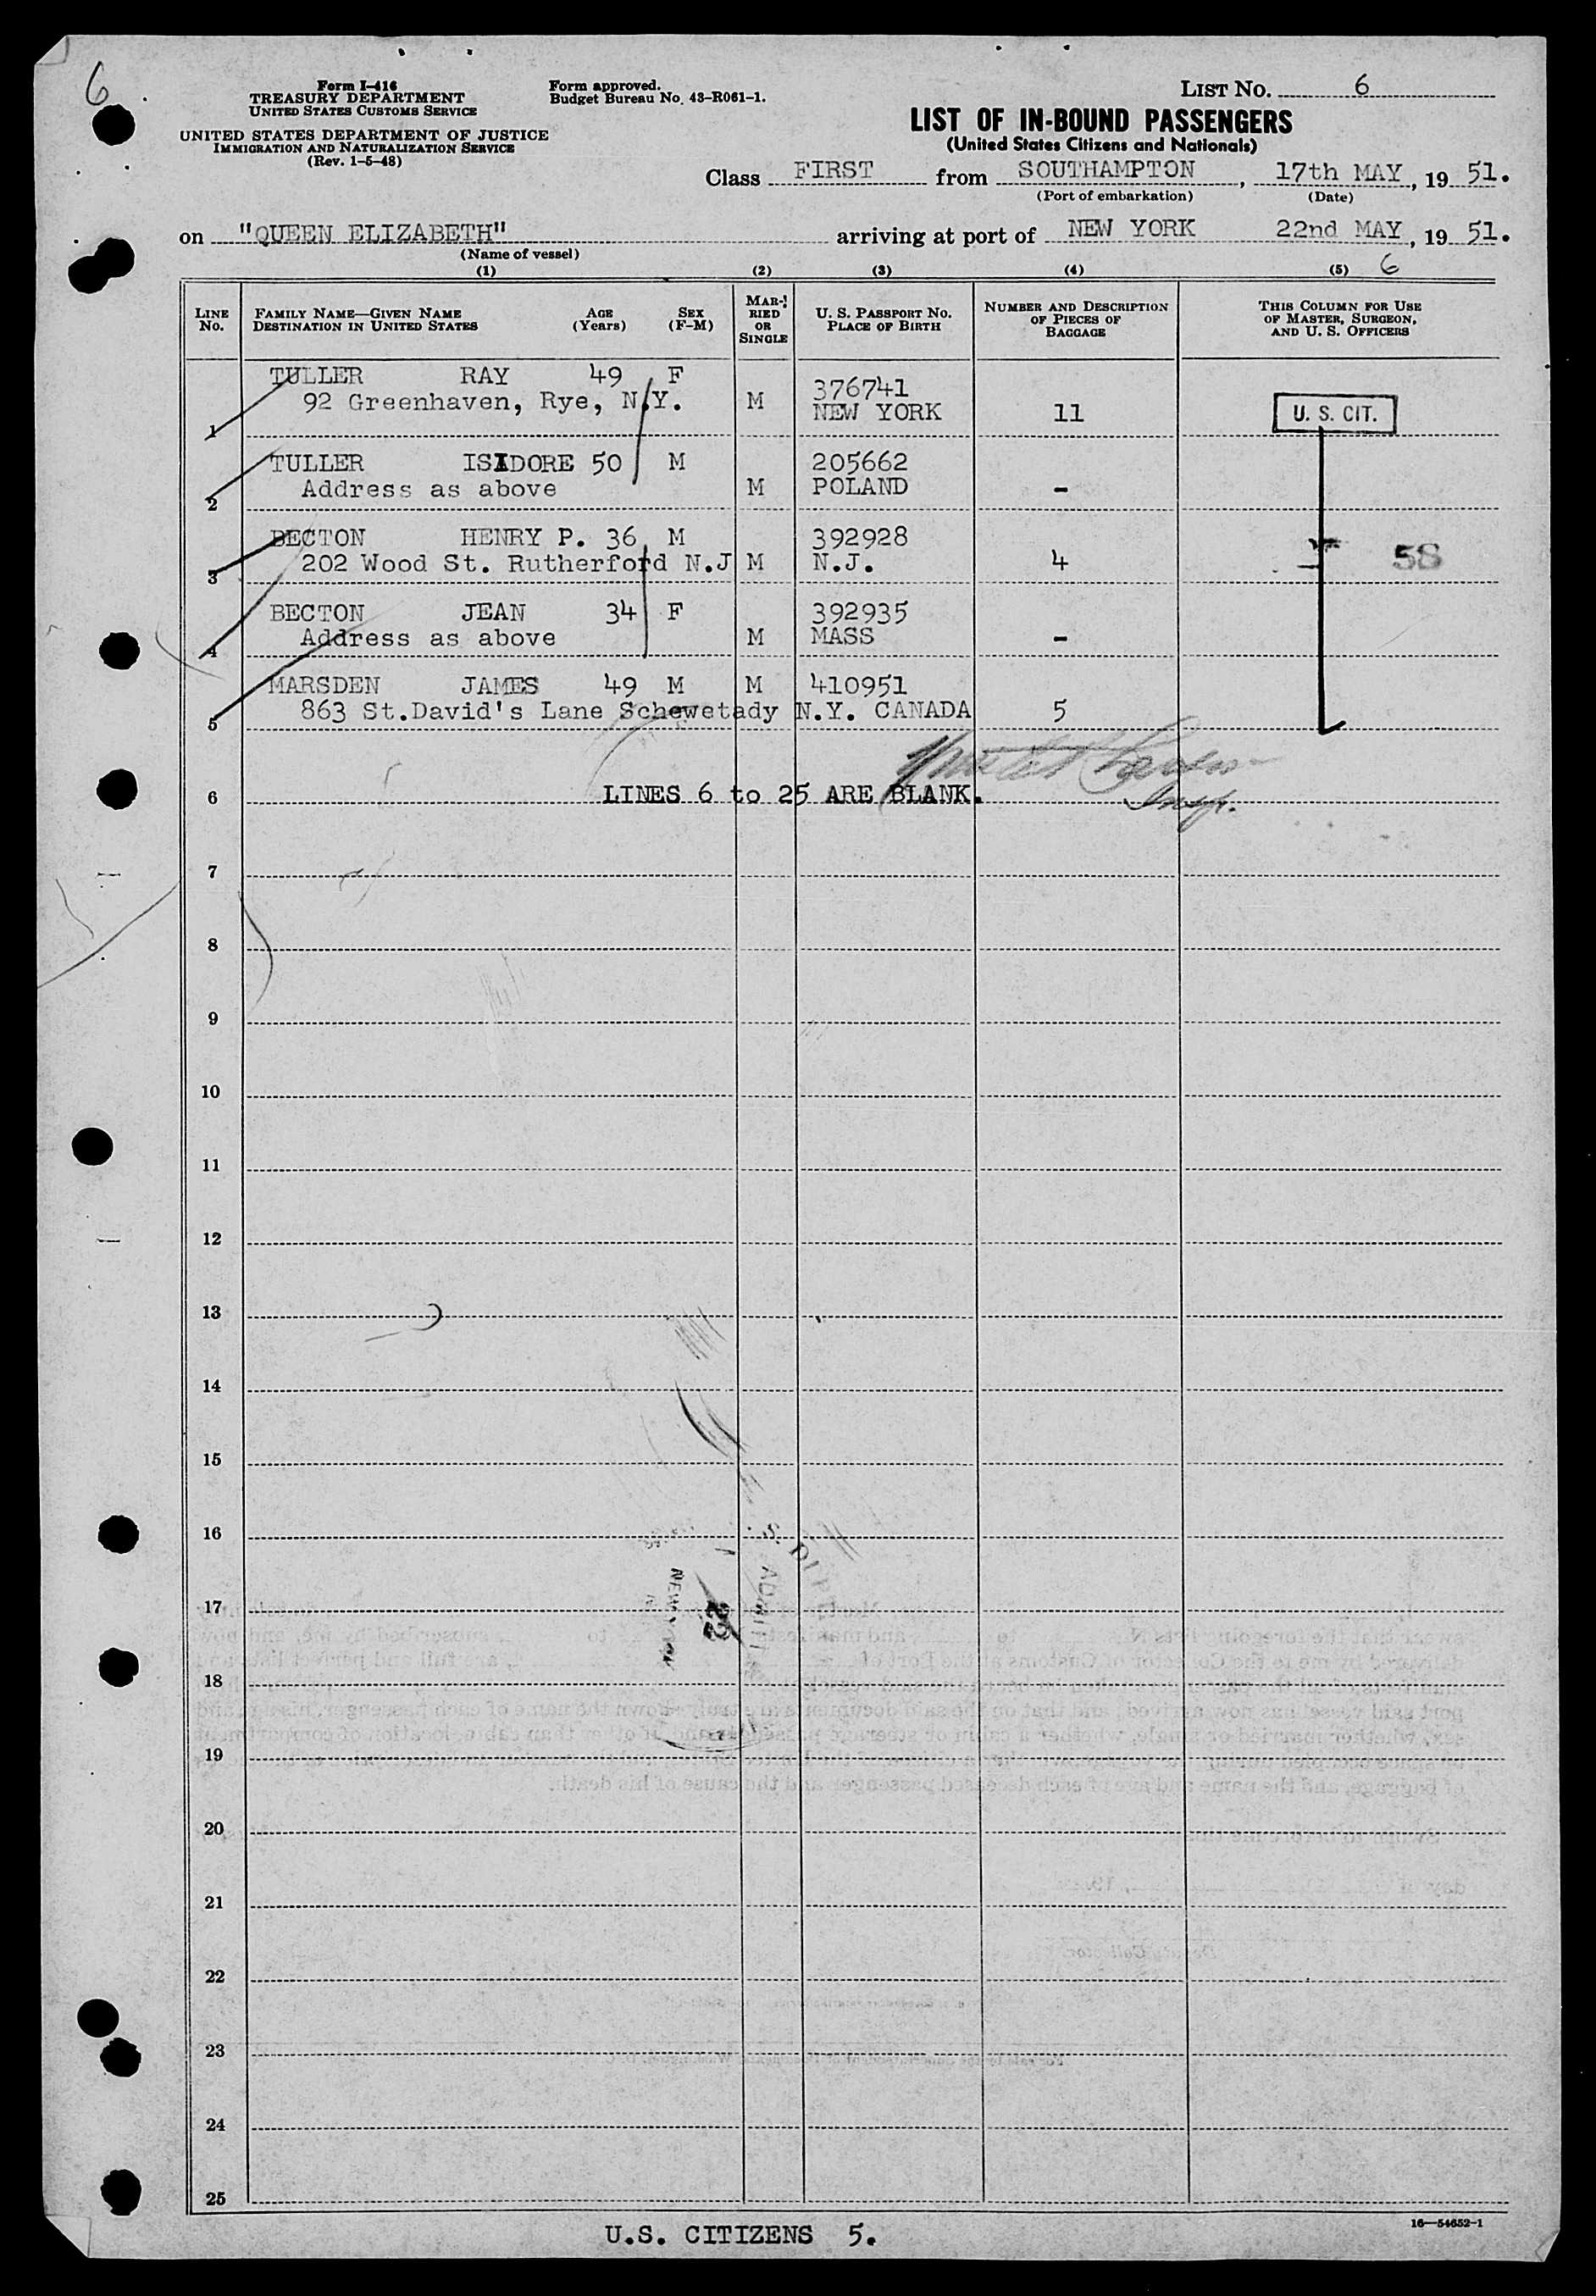 6
Form I-416
TREASURY DEPARTMENT
UNITED STATES CUSTOMS SERVICE
UNITED STATES DEPARTMENT OF JUSTICE
IMMIGRATION AND NATURALIZATION SERVICE
(Rev. 1-5-48)
Form approved.
Budget Bureau No. 43-R061-1.
LIST NO. 6
LIST OF IN-BOUND PASSENGERS
(United States Citizens and Nationals)
Class FIRST from SOUTHAMPTON, 17th MAY, 19 51.
(Port of embarkation) (Date)
on "QUEEN ELIZABETH" arriving at port of NEW YORK 22nd MAY, 19 51.
(Name of vessel)
(1) (2) (3) (4) (5) 6
LINE NO. FAMILY NAME—GIVEN NAME DESTINATION IN UNITED STATES AGE (Years) SEX (F-M) MARRIED OR SINGLE U. S. PASSPORT NO. PLACE OF BIRTH NUMBER AND DESCRIPTION OF PIECES OF BAGGAGE THIS COLUMN FOR USE OF MASTER, SURGEON, AND U. S. OFFICERS
TULLER RAY 49 F 376741
92 Greenhaven, Rye, N.Y. M NEW YORK 11 U. S. CIT.
1
TULLER ISIDORE 50 M 205662
Address as above M POLAND -
2
BECTON HENRY P. 36 M 392928
202 Wood St. Rutherford N.J M N.J. 4 58
3
BECTON JEAN 34 F 392935
Address as above M MASS -
4
MARSDEN JAMES 49 M M 410951
863 St.David's Lane Schewetady N.Y. CANADA 5
5
6 LINES 6 to 25 ARE BLANK.
Insp.
7
8
9
10
11
12
13
14
15
16
17
18
19
20
21
22
23
24
25
NEW YORK
22
ADMITTED
U.S. CITIZENS 5.
16—54652-1